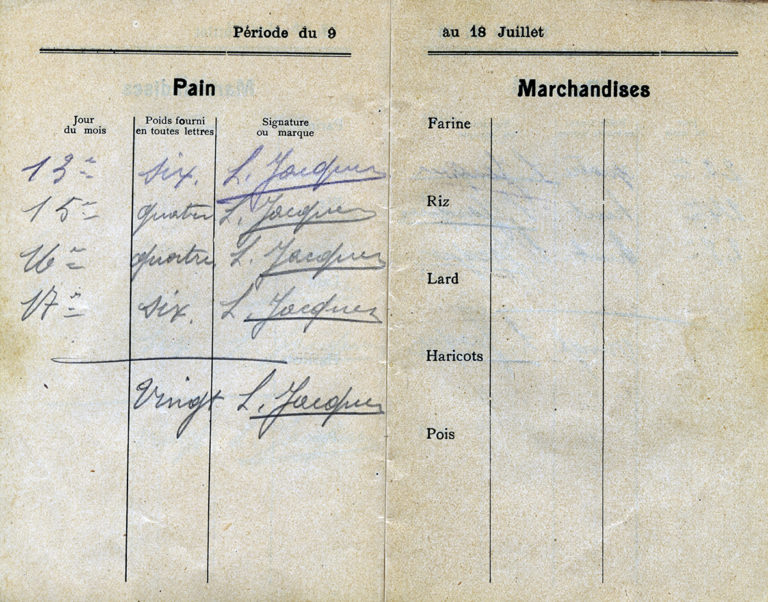 Période du 9
Pain
Jour du mois Poids fourni en toutes lettres Signature ou marque
13e six. L. Jacques
15e quatre L. Jacques
16e quatre L. Jacques
17e six. L. Jacques
Vingt L. Jacques
au 18 Juillet
Marchandises
Farine
Riz
Lard
Haricots
Pois